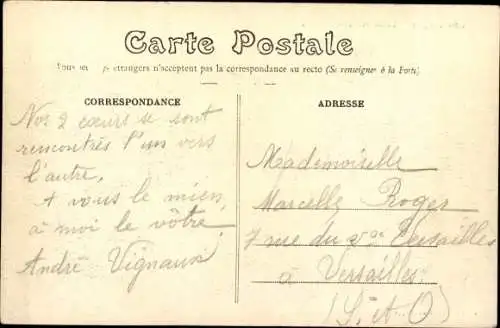 Carte Postale
étrangers n'acceptent pas la correspondance au recto (Se renseigner à la Poste)
CORRESPONDANCE
Nos 2 cœurs se sont
rencontrés l'un vers
l'autre,
A vous le mien,
à moi le vôtre
André Vignaux
ADRESSE
Mademoiselle
Marcelle Roger
7 rue du Versailles
à Versailles
(S. et O)